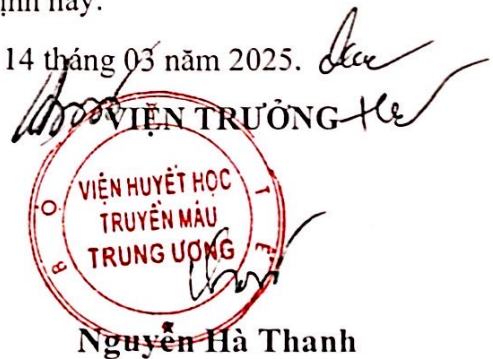 ịnh này.
14 tháng 03 năm 2025.
VIỆN TRƯỞNG
BỘ Y TẾ
VIỆN HUYẾT HỌC
TRUYỀN MÁU
TRUNG ƯƠNG
Nguyễn Hà Thanh